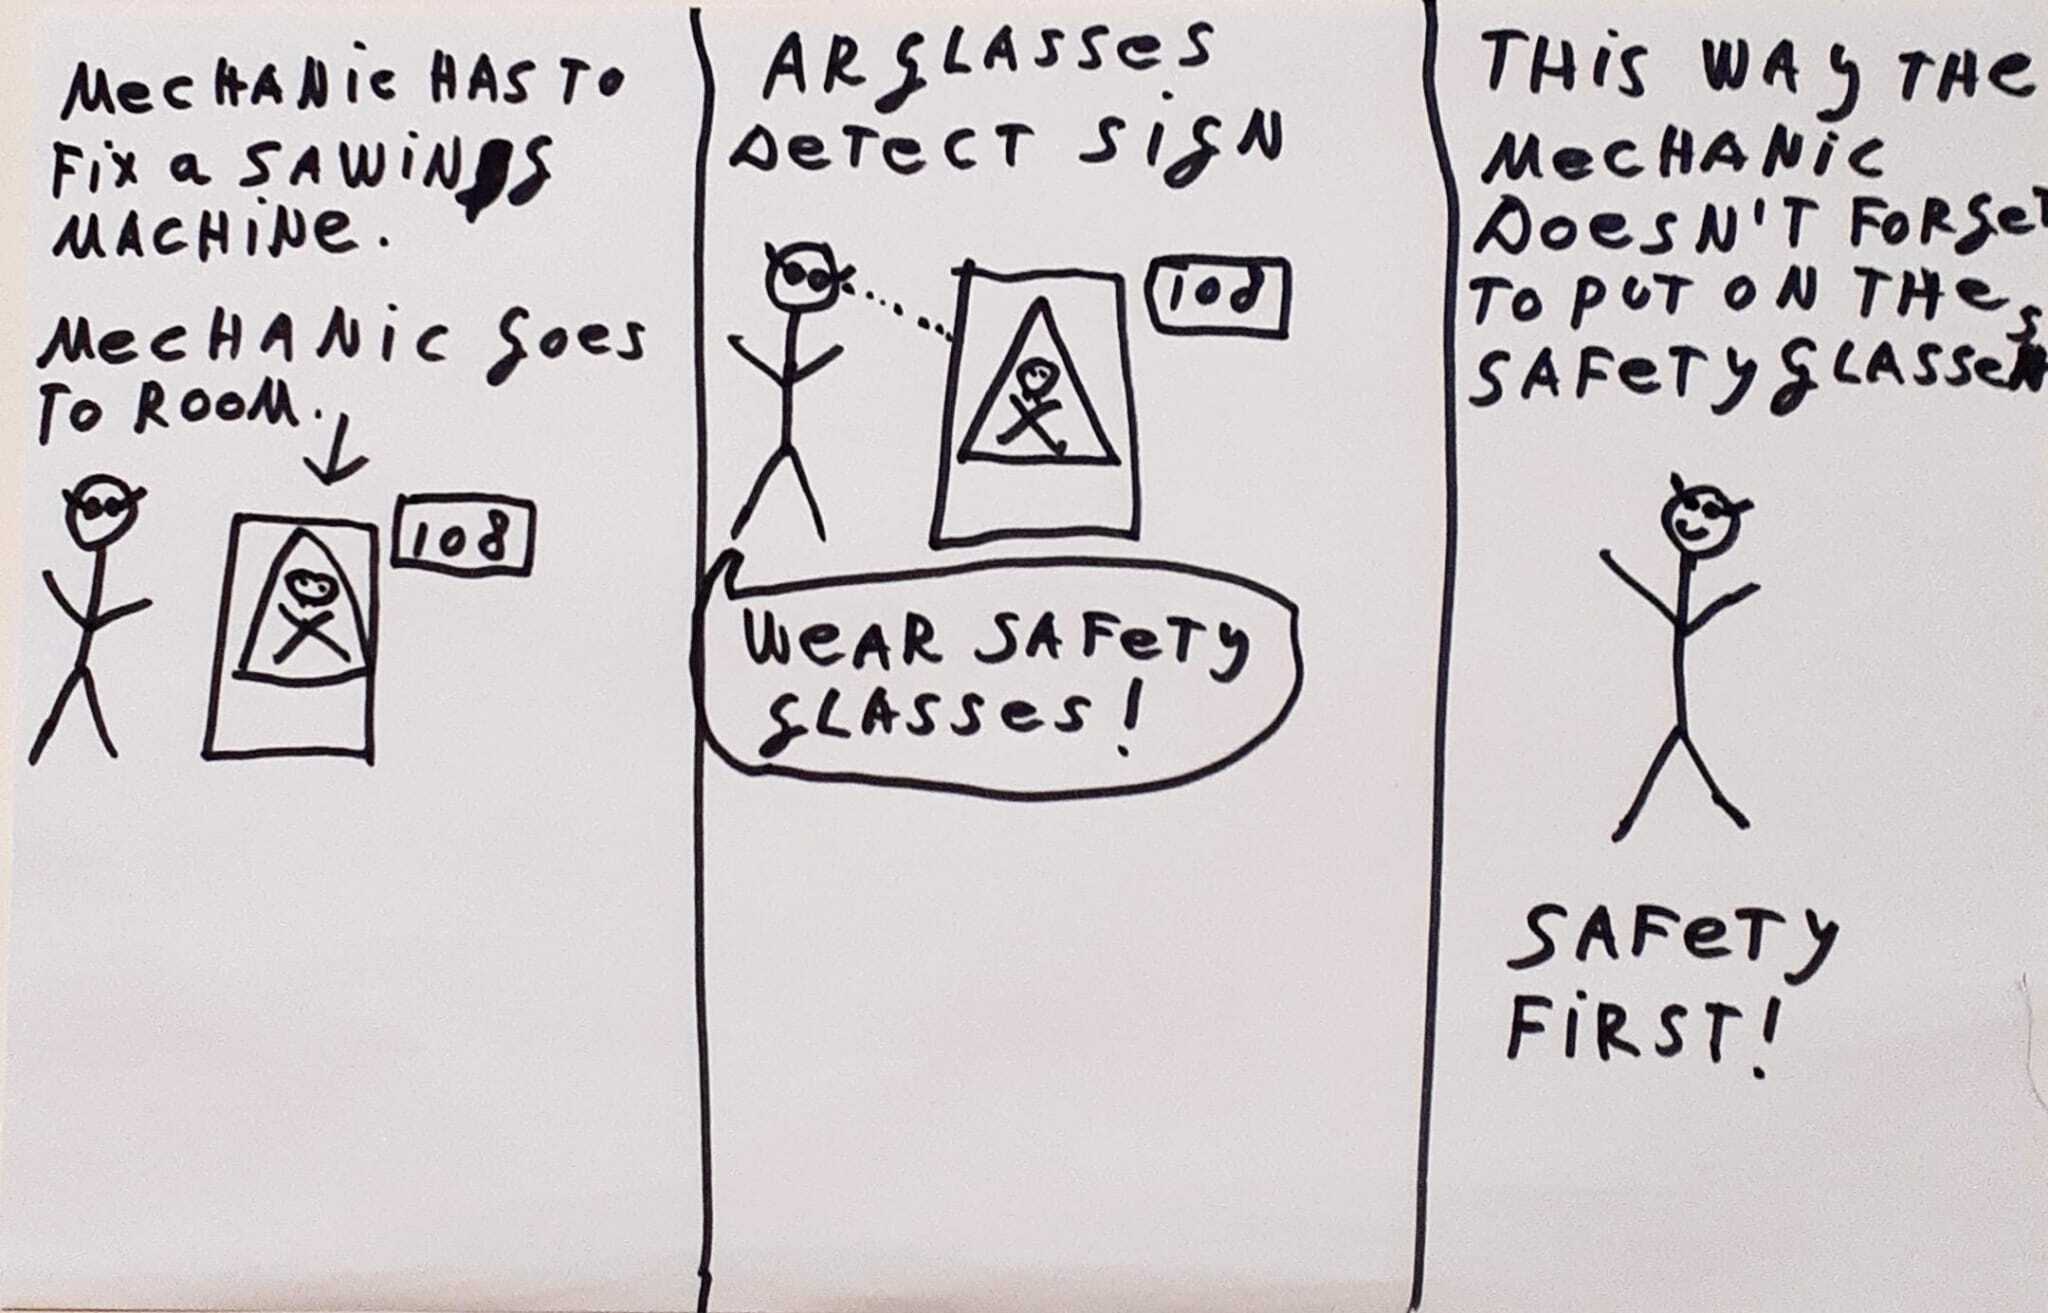 MecHANic HAS TO
Fix a SAWiNg
MACHiNe.
MecHANic goes
TO ROOM.
108
AR gLASSes
DeTecT SigN
108
WeAR SAFeTy
gLASSes!
THiS WAy THe
MecHANic
DoesN'T FoRgeT
TO PUT ON THe
SAFeTy gLASSes
SAFeTy
FiRST!